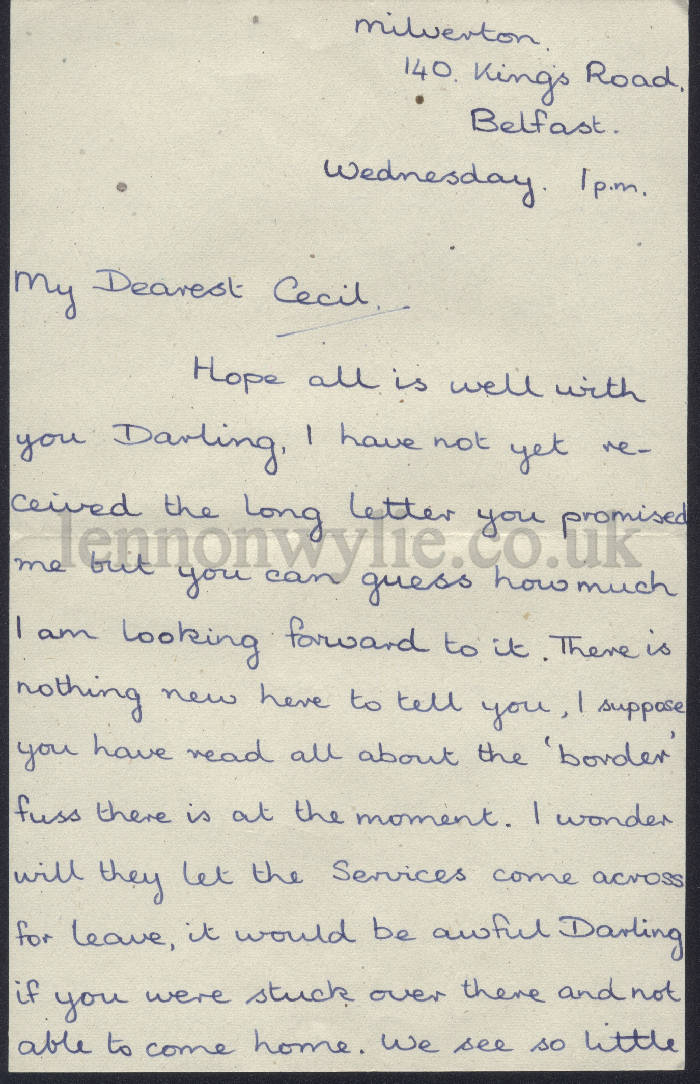 Milverton.
140. King's Road.
Belfast.
Wednesday. 1 p.m.
My Dearest Cecil.
Hope all is well with
you Darling, I have not yet re-
ceived the long letter you promised
lennonwylie.co.uk
me but you can guess how much
I am looking forward to it. There is
nothing new here to tell you, I suppose
you have read all about the 'border'
fuss there is at the moment. I wonder
will they let the Services come across
for leave, it would be awful Darling
if you were stuck over there and not
able to come home. We see so little